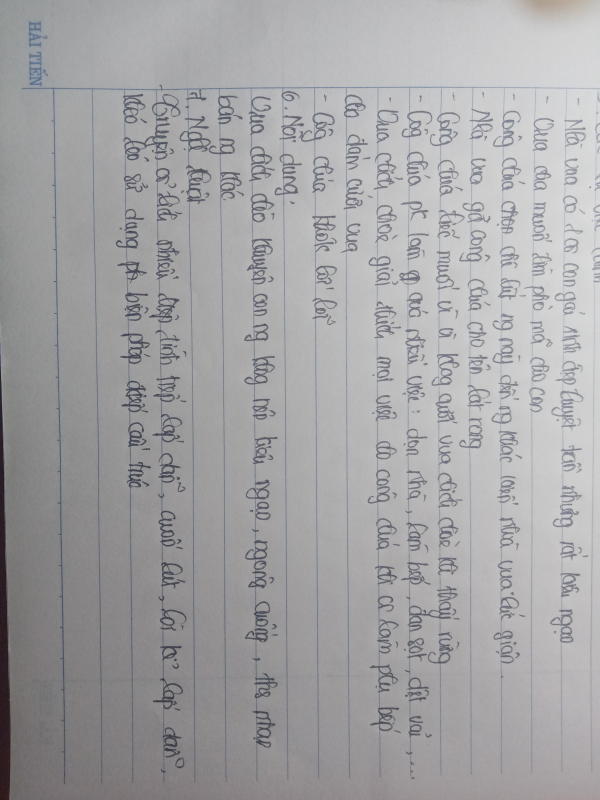 HẢI TIẾN
- Nhà vua có 1 cô con gái xinh đẹp tuyệt trần nhưng rất kiêu ngạo
- Vua cha muốn tìm phò mã cho con
- Công chúa chọn chê hết ng này đến ng khác khiến nhà vua tức giận.
- Nhà vua gả công chúa cho tên hát rong
- Công chúa tiếc muối vì đi vua chích choè kh thấy rừng
- Công chúa pk làm q quá nhiều việc: dọn nhà, làm bếp, đan sọt, dệt vải,...
- Vua chích choè giải thích mọi việc do công chúa khi cc làm phụ bếp
cho đám cưới vua
- Công chúa
6. Nội dung.
Vua chích choè khuyên con ng không nên kiêu ngạo, ngông cuồng, thích nhạo
báng ng khác
7. Nghệ thuật
- Truyện có kết nhiều tình tiết hấp dẫn, cuốn hút, lối kể hấp dẫn,
khéo léo sử dụng biện pháp điệp cấu trúc